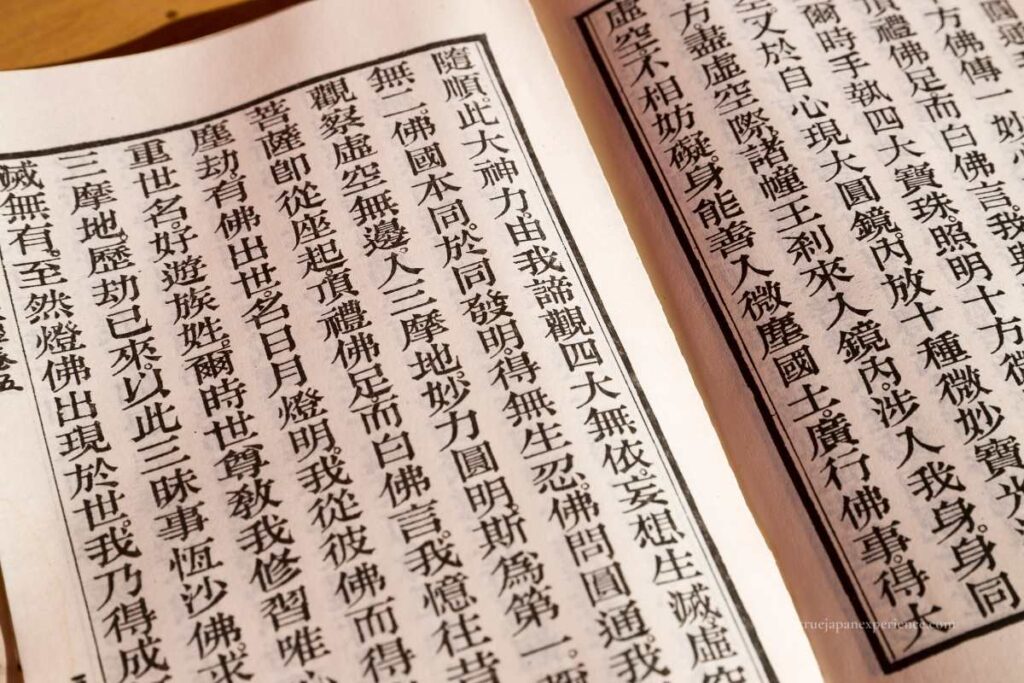 十方佛傳一妙
頂禮佛足而白佛言。我與
爾時手執四大寶珠。照明十方微
空。又於自心現大圓鏡。內放十種微妙寶光
方盡虛空際諸幢王剎來入鏡內。涉入我身。身同
虛空不相妨礙。身能善入微塵國土。廣行佛事。得大
隨順。此大神力。由我諦觀四大無依。妄想生滅。虛空
無二。佛國本同。於同發明。得無生忍。佛問圓通。我
觀察虛空無邊。入三摩地。妙力圓明。斯為第一。
菩薩即從座起。頂禮佛足而白佛言。我憶往昔
塵劫。有佛出世。名日月燈明。我從彼佛而得
重世名。好遊族姓。爾時世尊教我修習唯心
三摩地。歷劫已來。以此三昧事恆沙佛。求
滅無有。至然燈佛出現於世。我乃得成
卷五
truejapanexperience.com